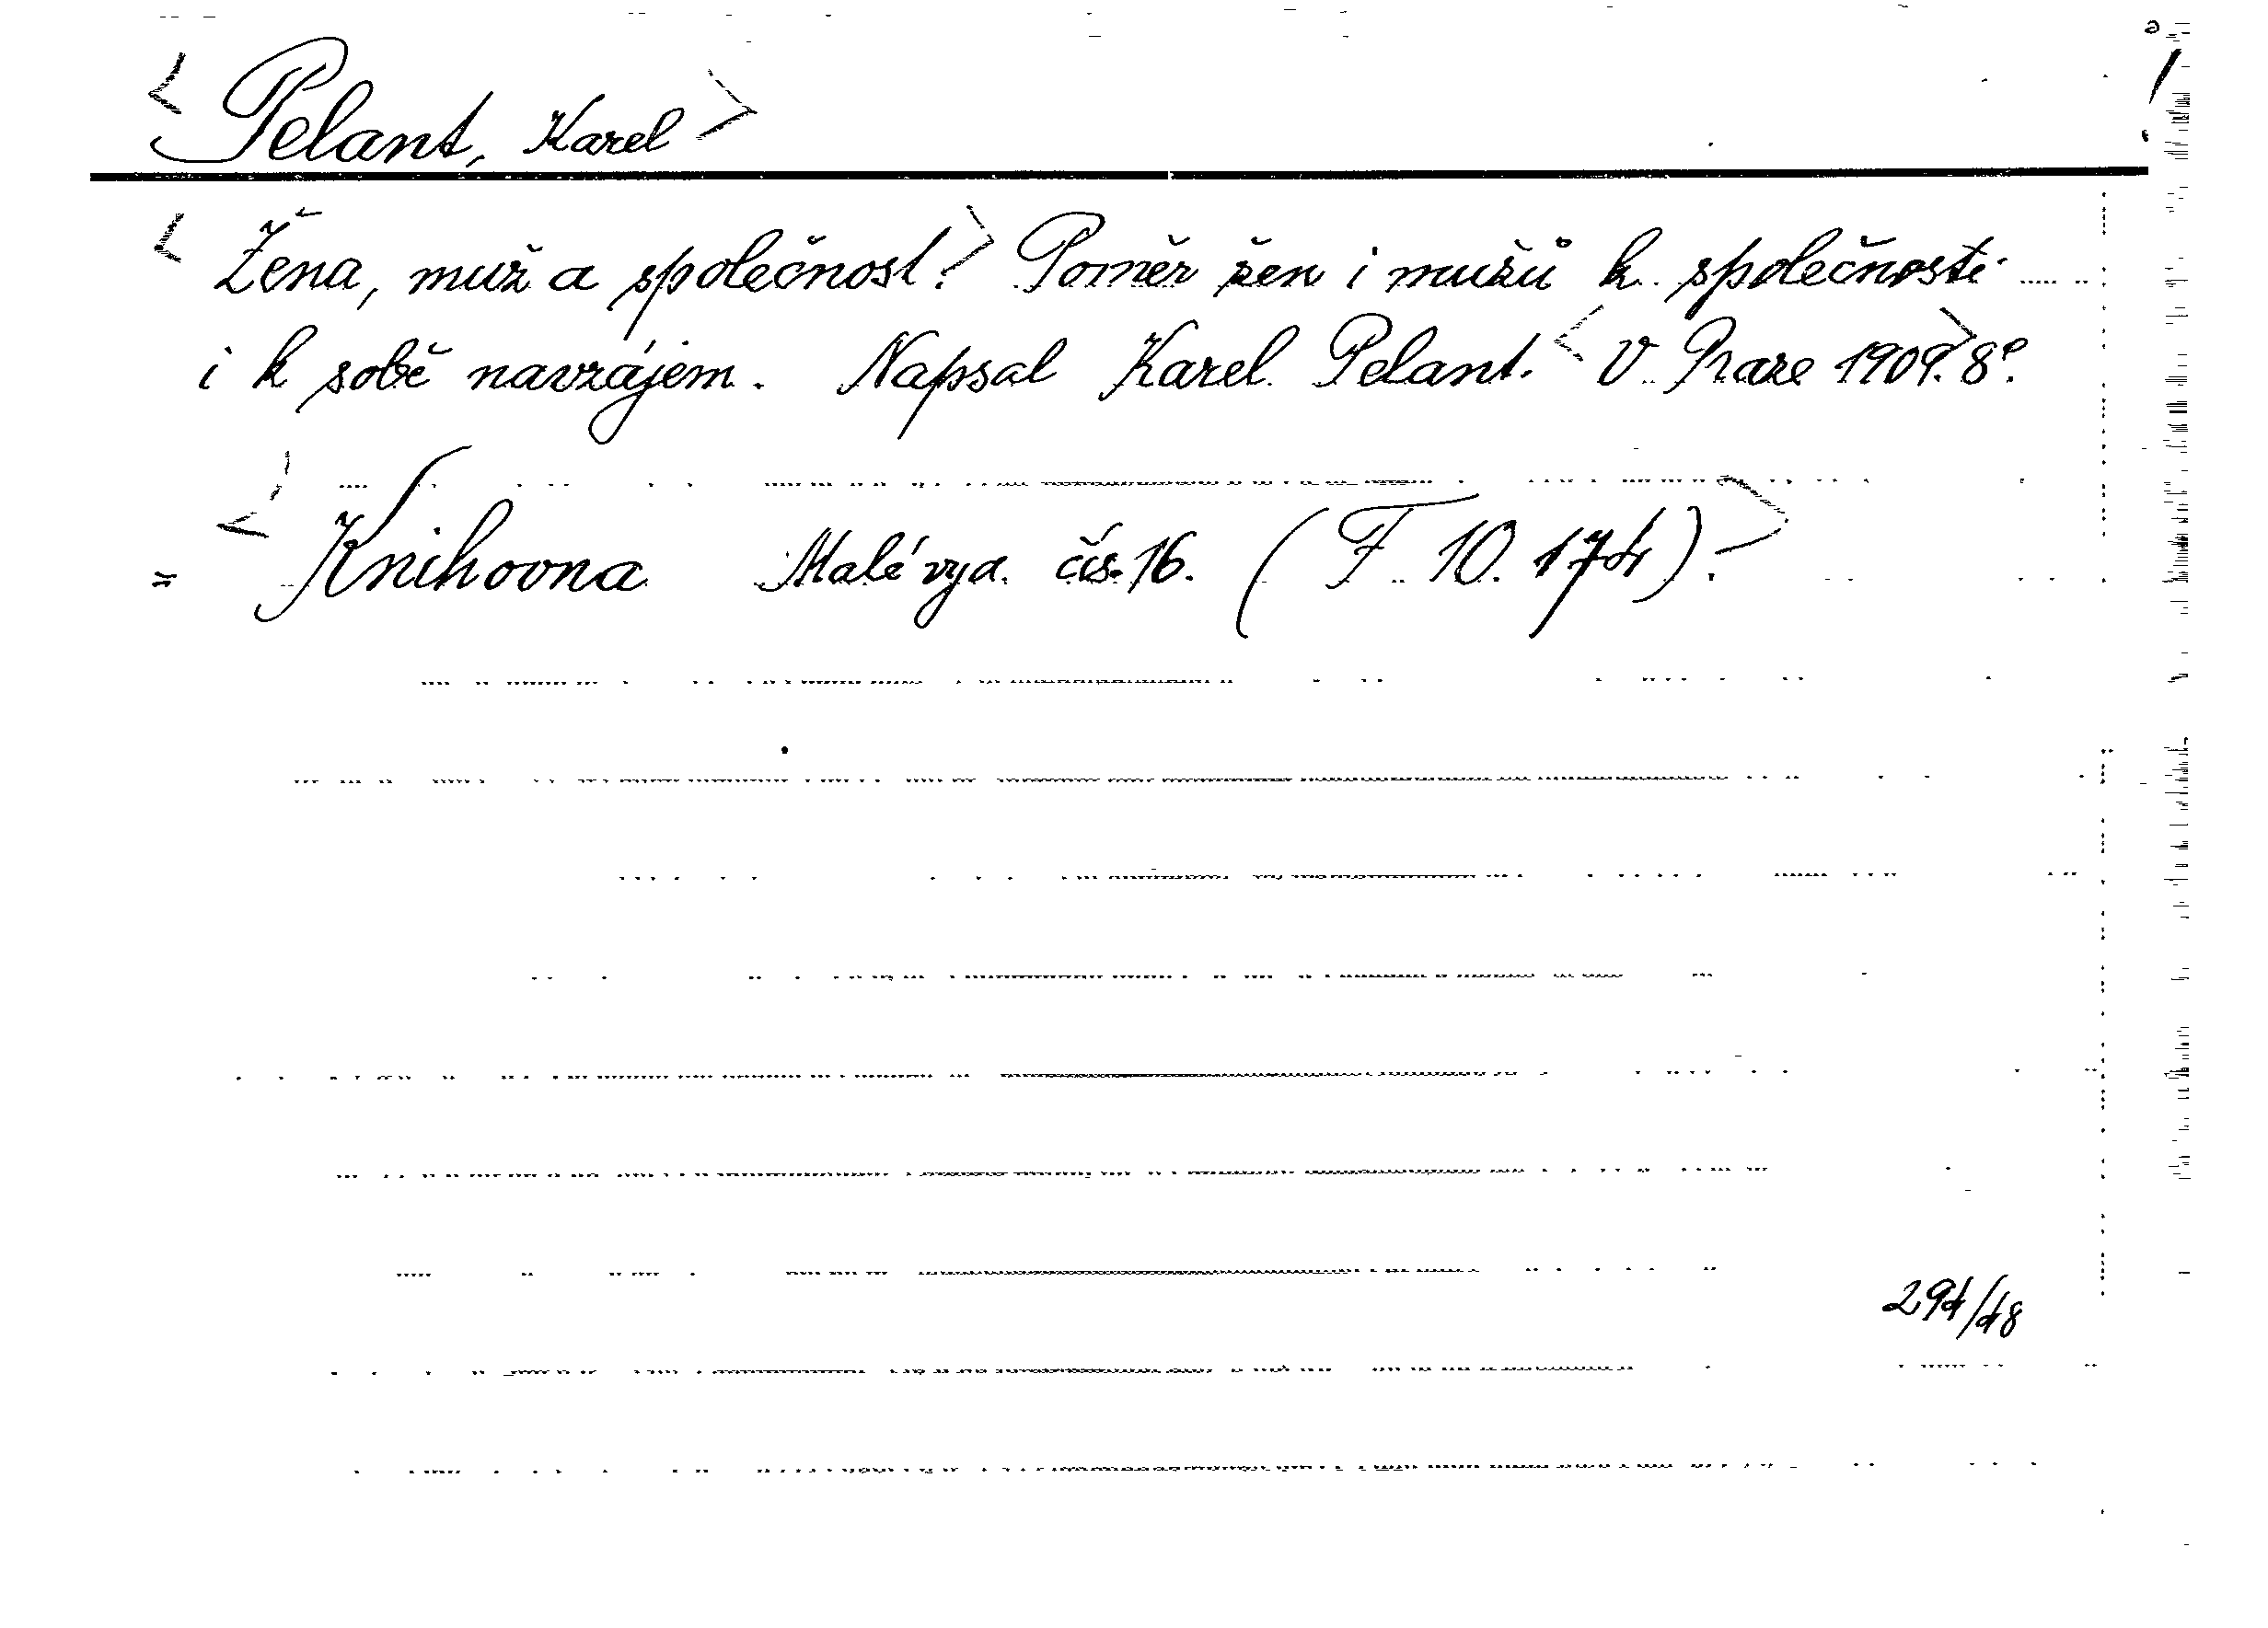 <Pelant, Karel>
<Žena, muž a společnost.> Poměr žen i mužů k společnosti
i k sobě navzájem. Napsal Karel Pelant. <V Praze 1909.> 8°.
= <Knihovna Malé vyd. čís. 16. (F 10. 174).>
294/48